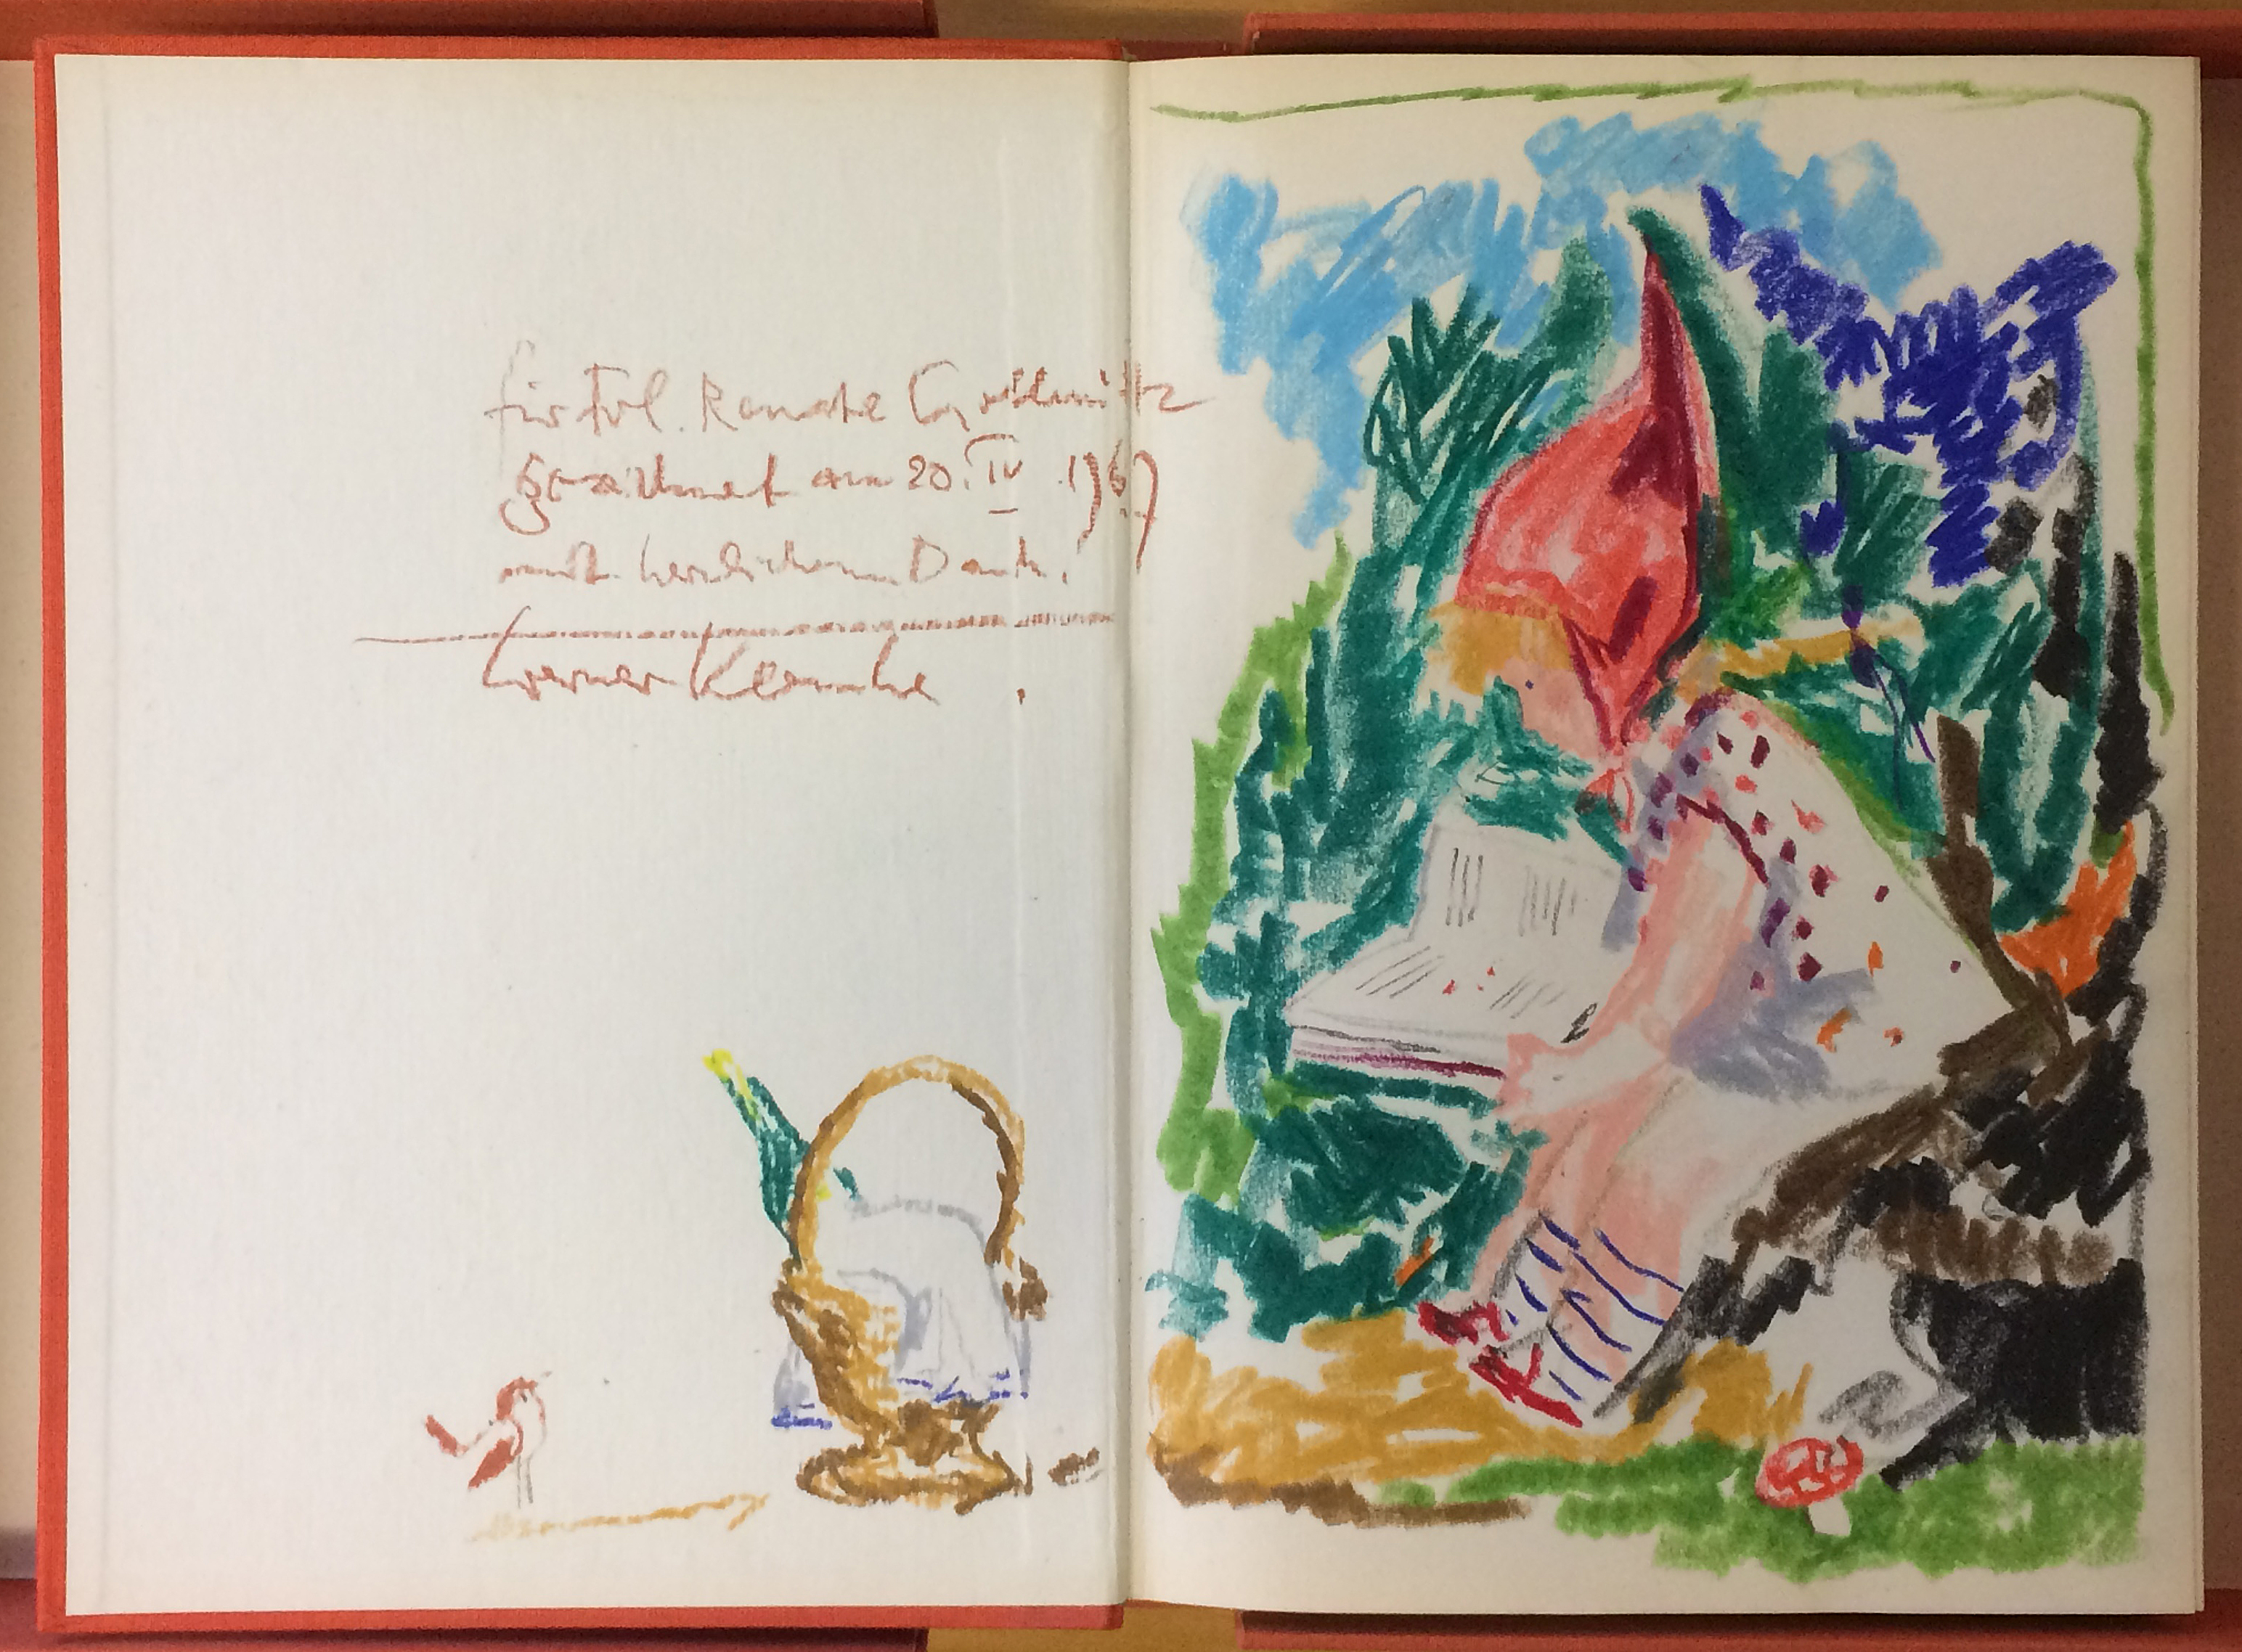 für Frl. Renate Gollmitz
gezeichnet am 20. IV. 1967
mit herzlichem Dank.
Werner Klemke.